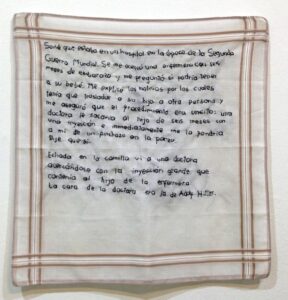 Soñé que estaba en un hospital en la época de la Segunda
Guerra Mundial. Se me acercó una enfermera con seis
meses de embarazo y me preguntó si podría tener
a su bebé. Me explicó los motivos por los cuales
tenía que trasladar a su hijo a otra persona y
me aseguró que el procedimiento era sencillo: una
doctora le sacaría al hijo de seis meses con
una inyección e inmediatamente me lo pondría
a mí de un pinchazo en la panza.
Dije que sí.
Echada en la camilla vi a una doctora
acercándose con la inyección grande que
contenía al hijo de la enfermera.
La cara de la doctora era la de Adolf Hitler.